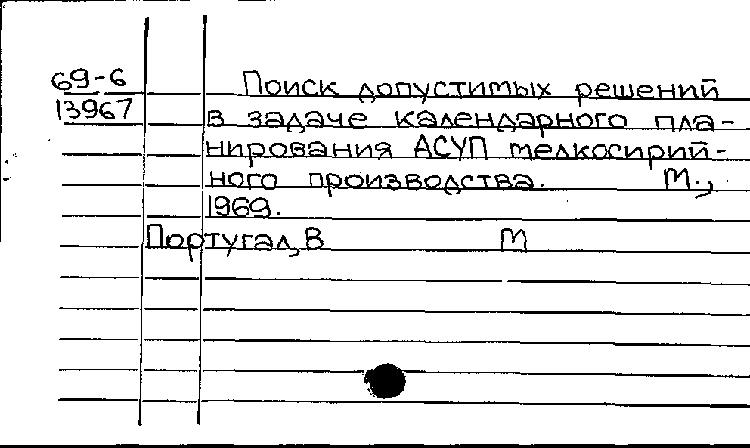 69-6 Поиск допустимых решений
13967 в задаче календарного пла-
нирования АСУП мелкосирий-
ного производства. М.,
1969.
Португал, В М